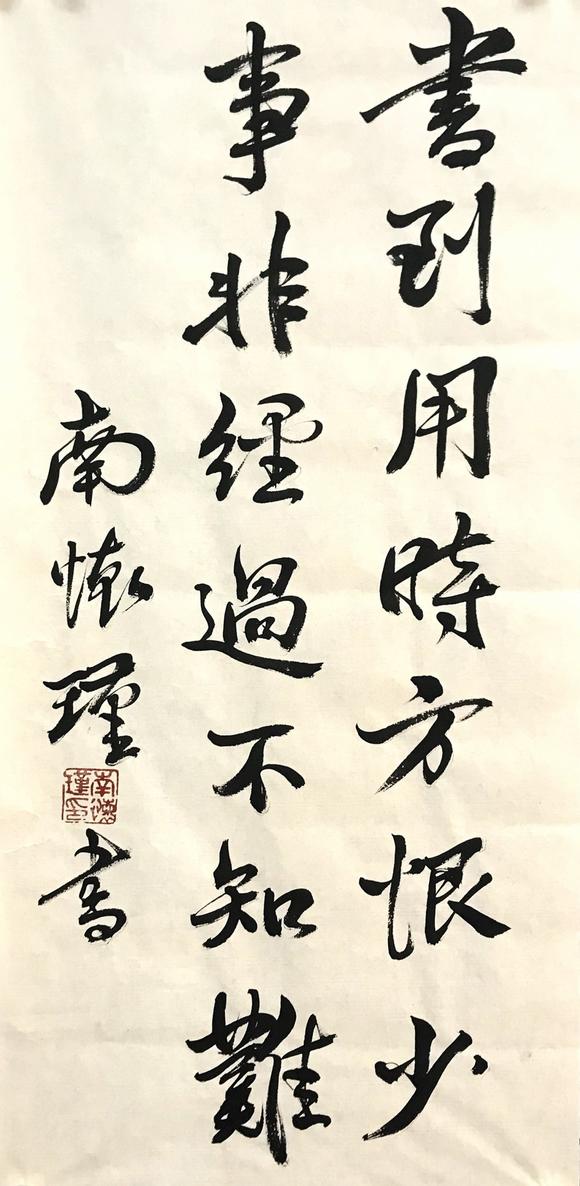 書到用時方恨少
事非經過不知難
南懷瑾書
南懷瑾印